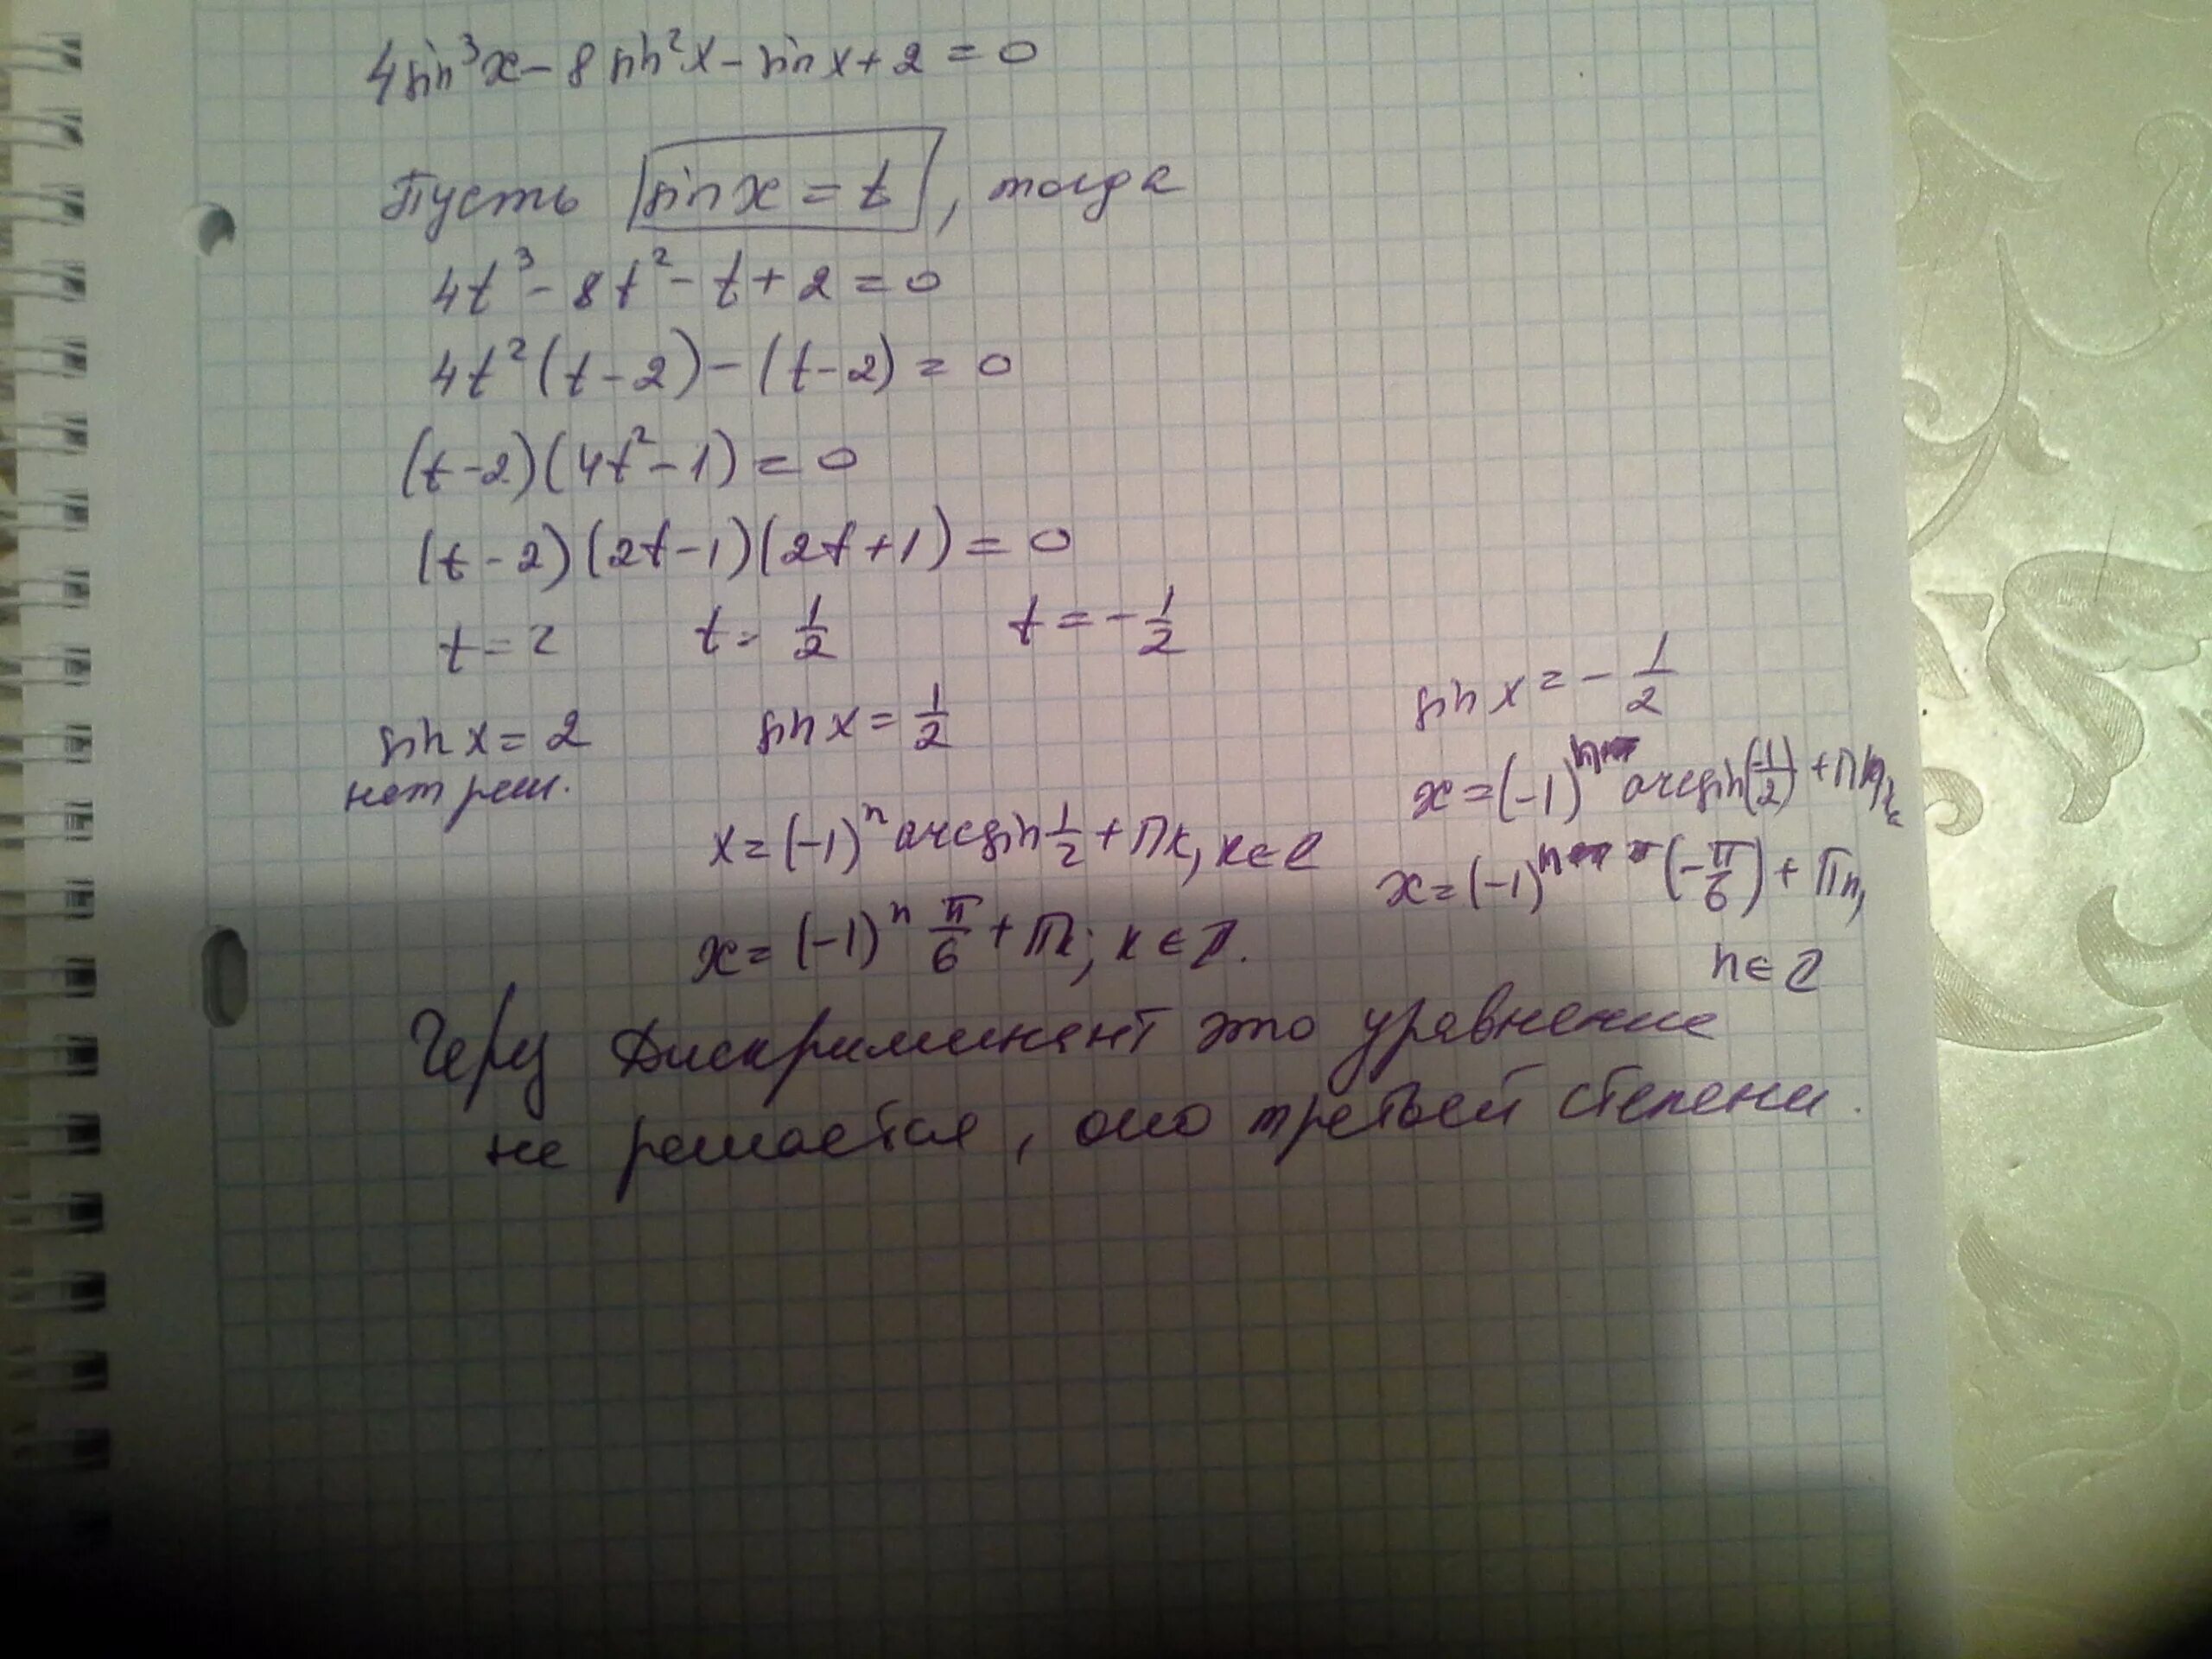 4sin³x - 8sin²x - sinx + 2 = 0
Пусть sinx = t, тогда
4t³ - 8t² - t + 2 = 0
4t²(t-2) - (t-2) = 0
(t-2)(4t²-1) = 0
(t-2)(2t-1)(2t+1) = 0
t = 2 t = 1/2 t = -1/2
sinx = 2 sinx = 1/2 sinx = -1/2
нет реш.
x = (-1)ⁿ arcsin 1/2 + πk, k∈Z
x = (-1)ⁿ π/6 + πk; k∈Z.
x = (-1)ⁿ arcsin(-1/2) + πn,
x = (-1)ⁿ (-π/6) + πn,
n∈Z
Через Дискриминант это уравнение
не решается, оно третьей степени.